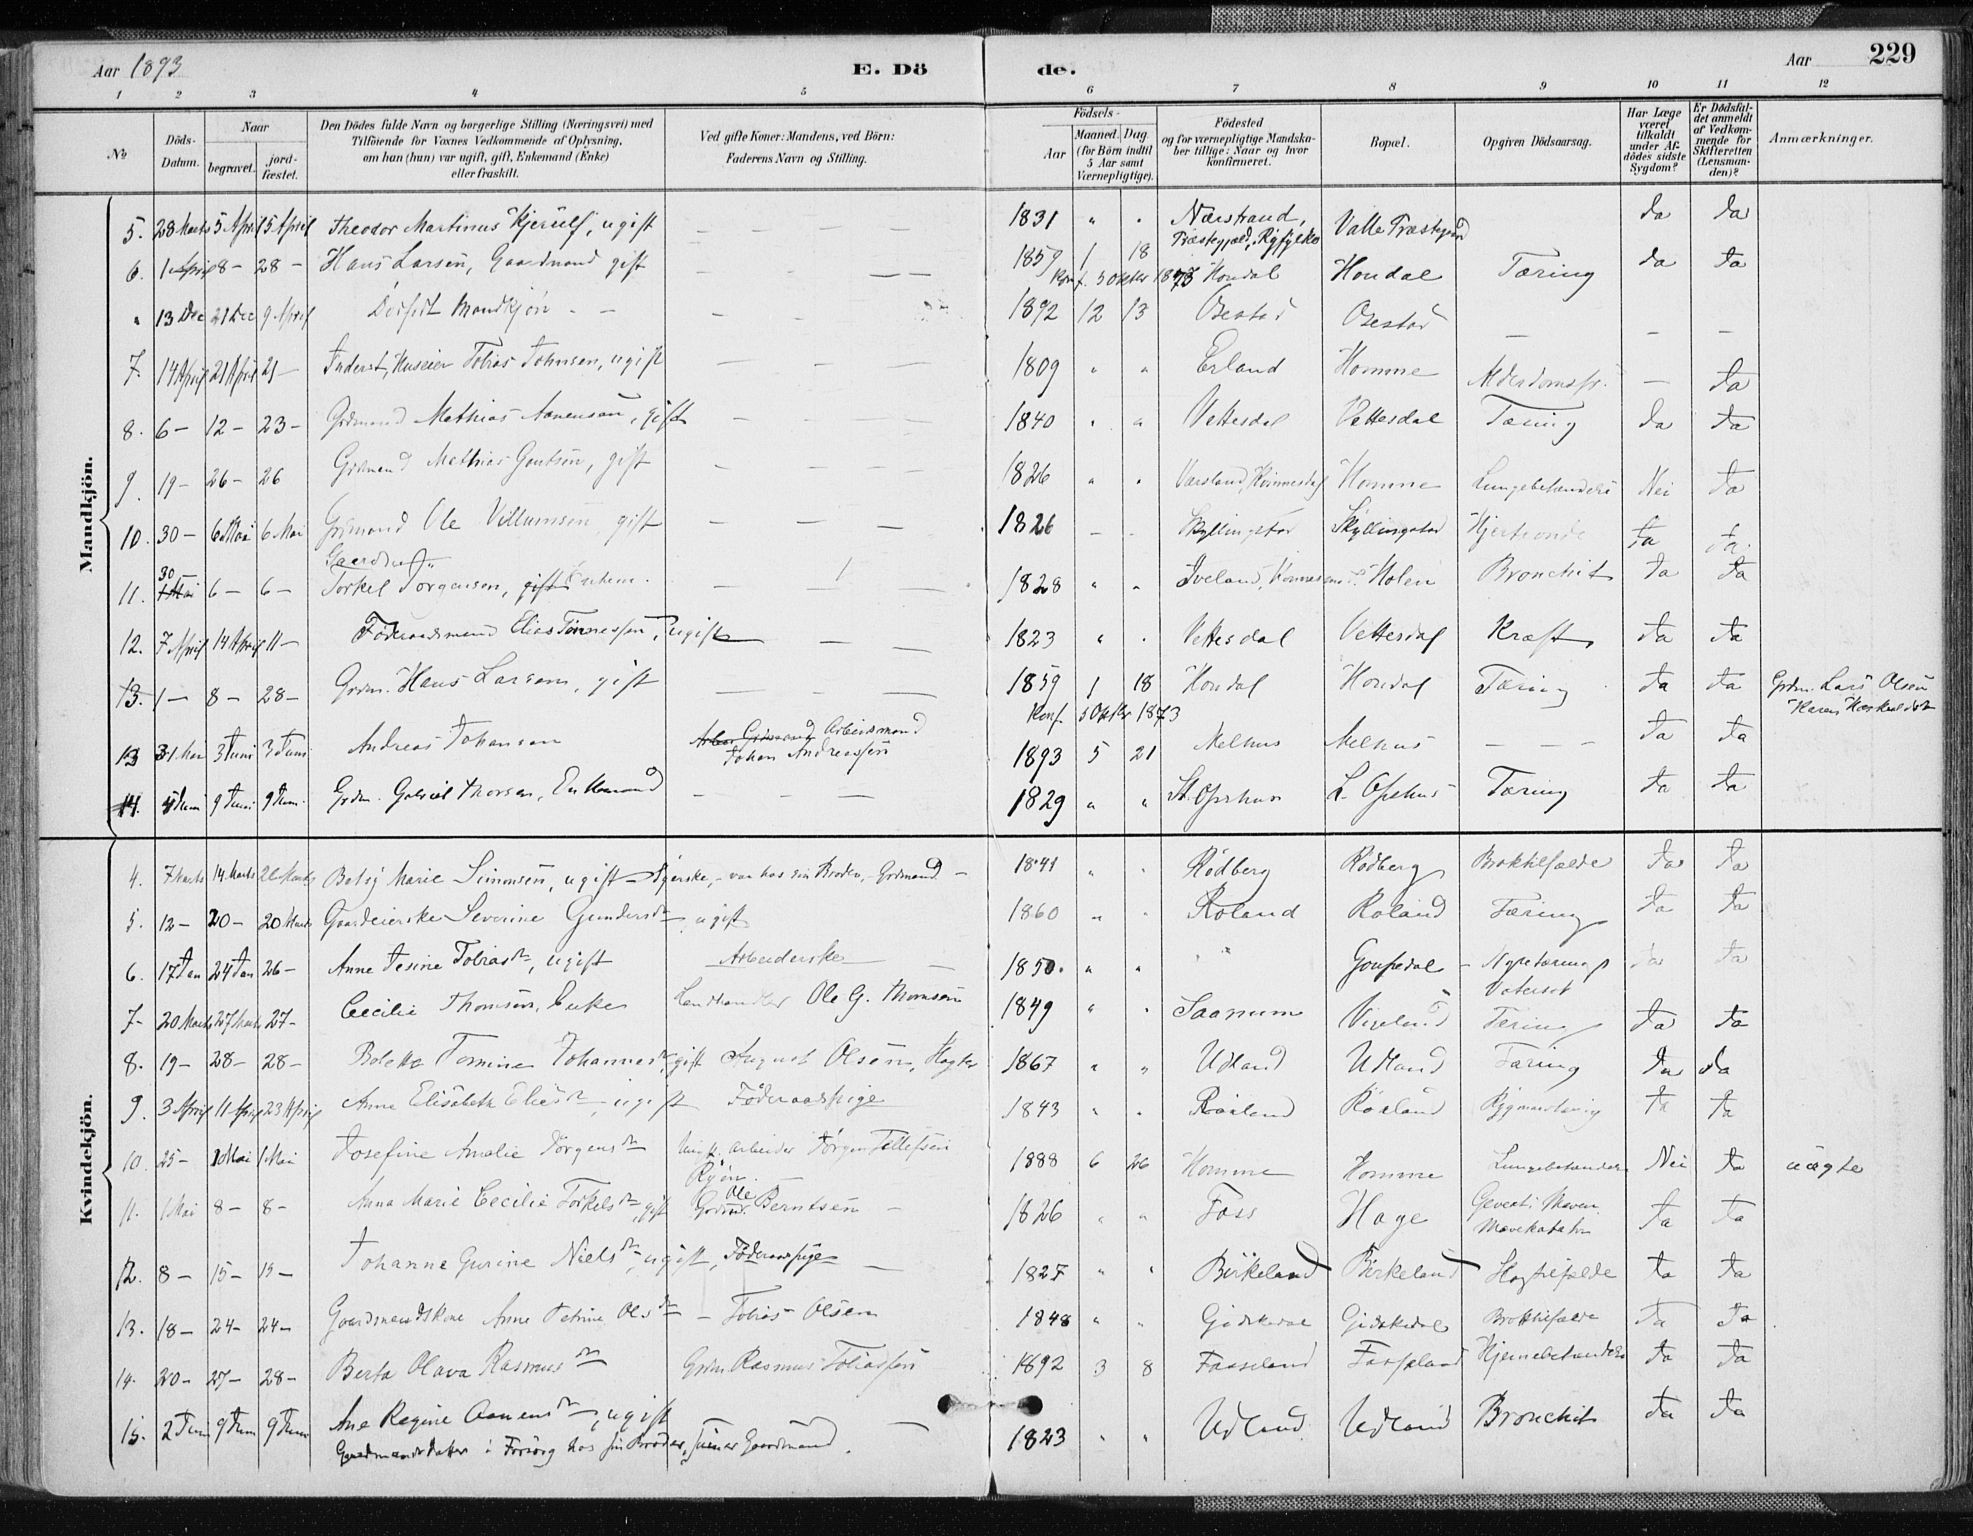 Aar 1893 E. Dö de. Aar 229
1 2 3 4 5 6 7 8 9 10 11 12
No
Döds-Datum.
Naar
begravet.
jord-fæstet.
Den Dödes fulde Navn og borgerlige Stilling (Næringsvei) med
Tilföiende for Voxnes Vedkommende af Oplysning,
om han (hun) var ugift, gift, Enkemand (Enke)
eller fraskilt.
Ved gifte Koner: Mandens, ved Börn:
Faderens Navn og Stilling.
Födsels-
Aar
Maaned. Dag.
(for Børn indtil
5 Aar samt
Værnepligtige).
Födested
og for værnepligtige Mandska-
ber tillige: Naar og hvor
konfirmeret.
Bopæl.
Opgiven Dödsaarsag.
Har Læge
været
tilkaldt
under Af-
dödes sidste
Sygdom?
Er Dødsfal-
det anmeldt
af Vedkom-
mende for
Skifteretten
(Lensman-
den)?
Anmærkninger.
Mandkjön.
5. 28 Marts 5 April 15 April Theodor Martinus Kjerulf, ugift 1831 " " Nærstrand, Præstegjæld, Ryfylke Valle Præstegaard Ja Ja
6. 1 April 8 – 28 – Hans Larsen, Gaardmand gift 1859 1 18 Konf. 5 Oktbr 1873 Hondal Hondal Tæring Ja Ja
" 13 Dec 21 Dec 9 April Dödfødt Mandkjön – – 1892 12 13 Osestad Osestad – – –
7. 14 April 21 April 21 – Inderst, Huseier Tobias Johnsen, ugift 1809 " " Erland Homme – Ja
8. 6 – 12 – 23 – Grdmand Mathias Aanensen, gift 1840 " " Vettesdal Vettesdal Tæring Ja Ja
9. 19 – 26 – 26 Grdmand Mathias Gautsen, gift 1826 " " Homme Lungebetændelse Nei Ja
10. 30 – 6 Mai 6 Mai Grdmand Ole Villumsen gift 1826 – – Skyllingstad Skyllingstad Ja Ja
11. 30 6 – 6 – Torkel Jörgensen, gift Enkem. 1828 " " Iveland, Holen Bronchit Ja Ja
12. 7 April 14 April 11 – Föderaadsmand Elias Tönnessen, ugift 1823 " " Vettesdal Vettesdal Kræft Ja Ja
13. 1 – 8 – 28 – Grdm. Hans Larsen, gift 1859 1 18 Konf. 5 Oktbr 1873 Hondal Hondal Tæring Ja Ja Grdm. Lars Olsen
13 31 Mai 3 Juni 3 Juni Andreas Johansen Arbeidsmand Johan Andreassen 1893 5 21 Melhus Melhus – – – Ja Ja
14. 4 Juni 9 Juni 9 Juni. Grdm. Gabriel Thorsen, Enkemand – – – 1829 " " St. Opshus L. Opshus Tæring Ja Ja
Kvindekjön.
4. 7 Marts 14 Marts 26 Marts Betsy Marie Simonsen, ugift – Syerske, – var hos sin Broder, – Grdmand – 1841 " " Rödberg Rödberg Broktilfælde Ja Ja
5. 12 – 20 – 20 Marts Gaardeierske Severine Gundersdtr, ugift 1860 " " Roland Roland Tæring Ja Ja
6. 17 Jan 24 Jan 26 – Anne Tesine Tobiasdtr, ugift Arbeiderske 1850. " " " Goupedal – Ja Ja
7 – 20 Marts 27 Marts 27 – Cecilie Thomsen, Enke Landhandler Ole G. Thomsen 1849 " " Saanum Vigeland Tæring Ja Ja
8. 19 – 28 – 28 – Bolette Tomine Johannesdtr, gift August Olsen, 1867 " " Udland Udland Tæring Ja Ja
9. 3 April 11 April 23 April Anne Elisabeth Eliasdtr, ugift Föderaadspige 1843 " " Röiland Röiland Rygmarvtæring Ja Ja
10. 25 – 1 Mai 1 Mai Josefine Amalie Jörgensdtr Ungk. arbeider Jörgen Tellefsen 1888 6 26 Homme Homme Lungebetændelse Nei Ja uægte
11. 1 Mai 8 – 8 – Anna Marie Cecilie Torkelsdtr, gift Grdmd. Ole Berntsen – 1826 " " Foss Hage Mavekatahr Ja Ja
12. 8 – 15 – 15 – Johanne Gurine Nielsdtr, ugift, Föderaadspige 1827 " " Birkeland Birkeland Ja Ja
13. 18 – 24 – 24 – Gaardmandskone Anne Petrine Olsdtr – Tobias Olsen 1848 " " Gidskedal Gidskedal Broktilfælde Ja Ja
14. 20 – 27 – 28 – Berta Olava Rasmusdtr Grdm. Rasmus Tobiassen 1892 3 8 Faaseland Faaseland Hjernebetændelse Ja Ja
15. 2 Juni 9 Juni 9 Juni Ane Regine Aanensdtr, ugift
Gaardmandsdatter i Forsörg hos sin Broder, Gaardmand. 1823 " " Udland Udland Bronchit Ja Ja